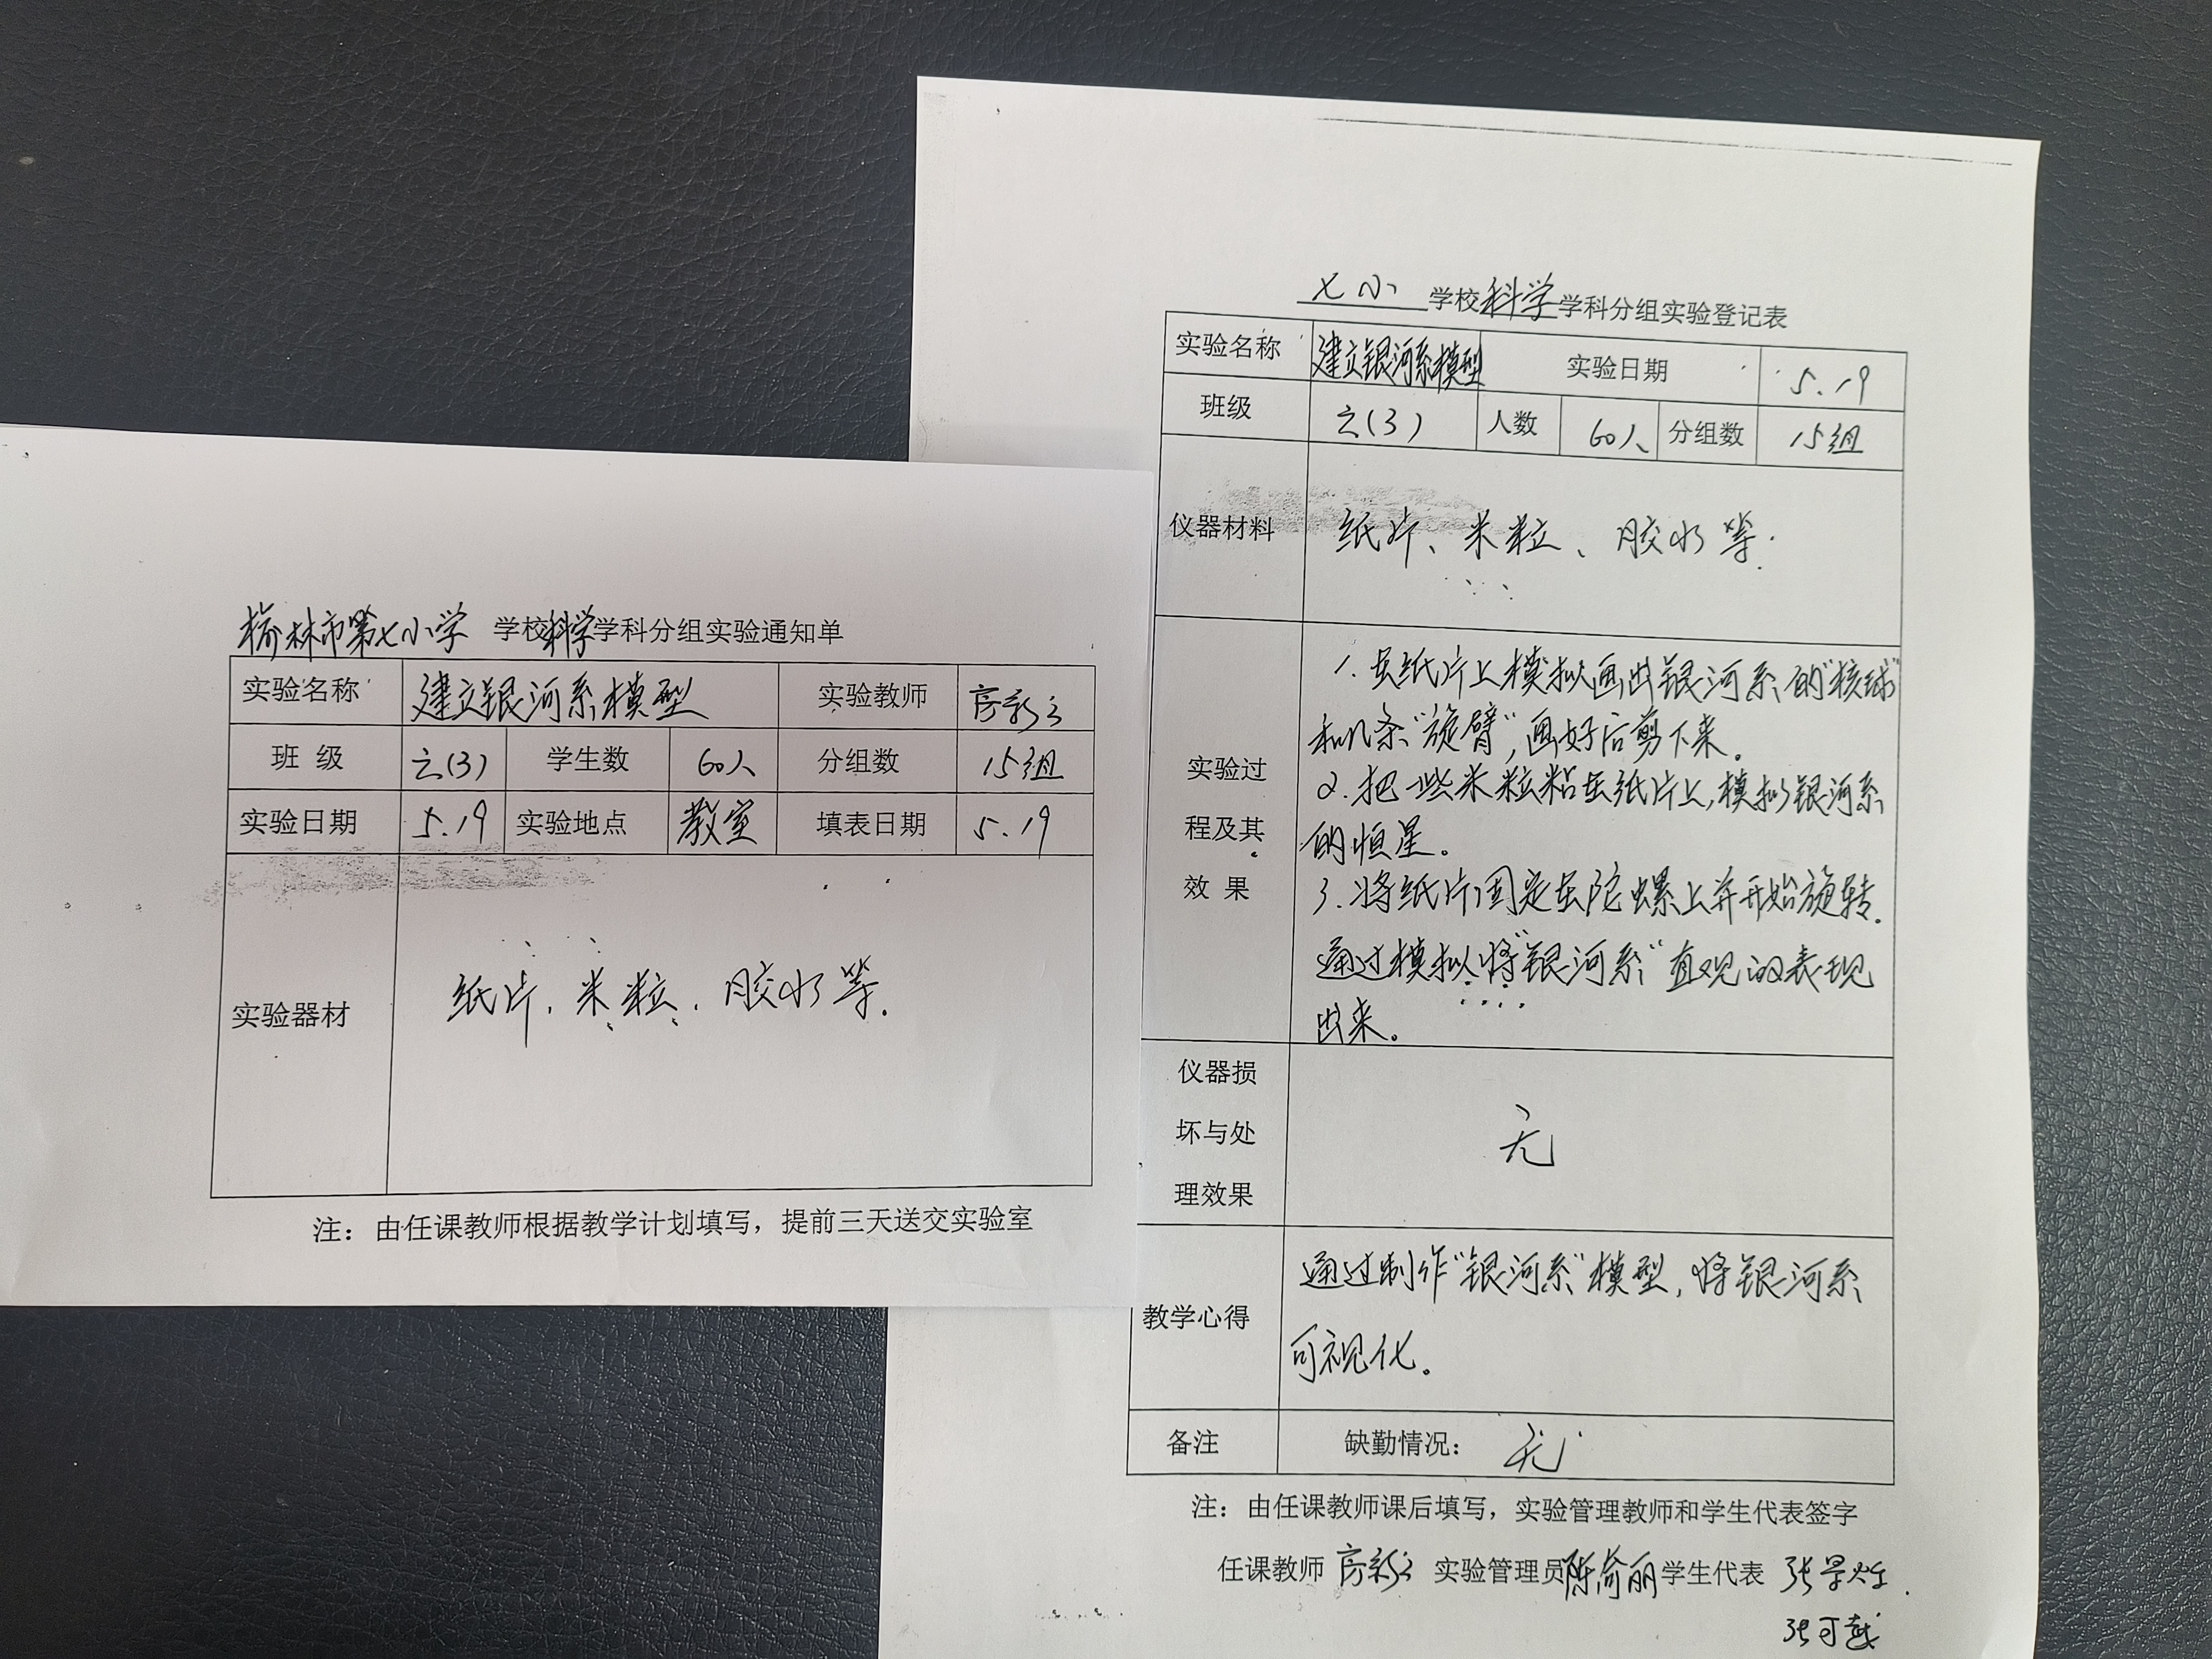 榆林市第七小学 学校科学学科分组实验通知单
实验名称 建立银河系模型 实验教师
班 级 六(3) 学生数 60人 分组数 15组
实验日期 5.19 实验地点 教室 填表日期 5.19
实验器材 纸片、米粒、胶水等.
注：由任课教师根据教学计划填写，提前三天送交实验室
七小 学校科学学科分组实验登记表
实验名称 建立银河系模型 实验日期 5.19
班级 六(3) 人数 60人 分组数 15组
仪器材料 纸片、米粒、胶水等.
实验过
程及其
效 果
1.在纸片上模拟画出银河系的“核球”
和几条“旋臂”,画好后剪下来。
2.把一些米粒粘在纸片上,模拟银河系
的恒星。
3.将纸片固定在陀螺上并开始旋转.
通过模拟将“银河系”直观的表现
出来。
仪器损
坏与处
理效果
无
教学心得
通过制作“银河系”模型,将银河系
可视化。
备注 缺勤情况： 无
注：由任课教师课后填写，实验管理教师和学生代表签字
任课教师 实验管理员 学生代表
张可越